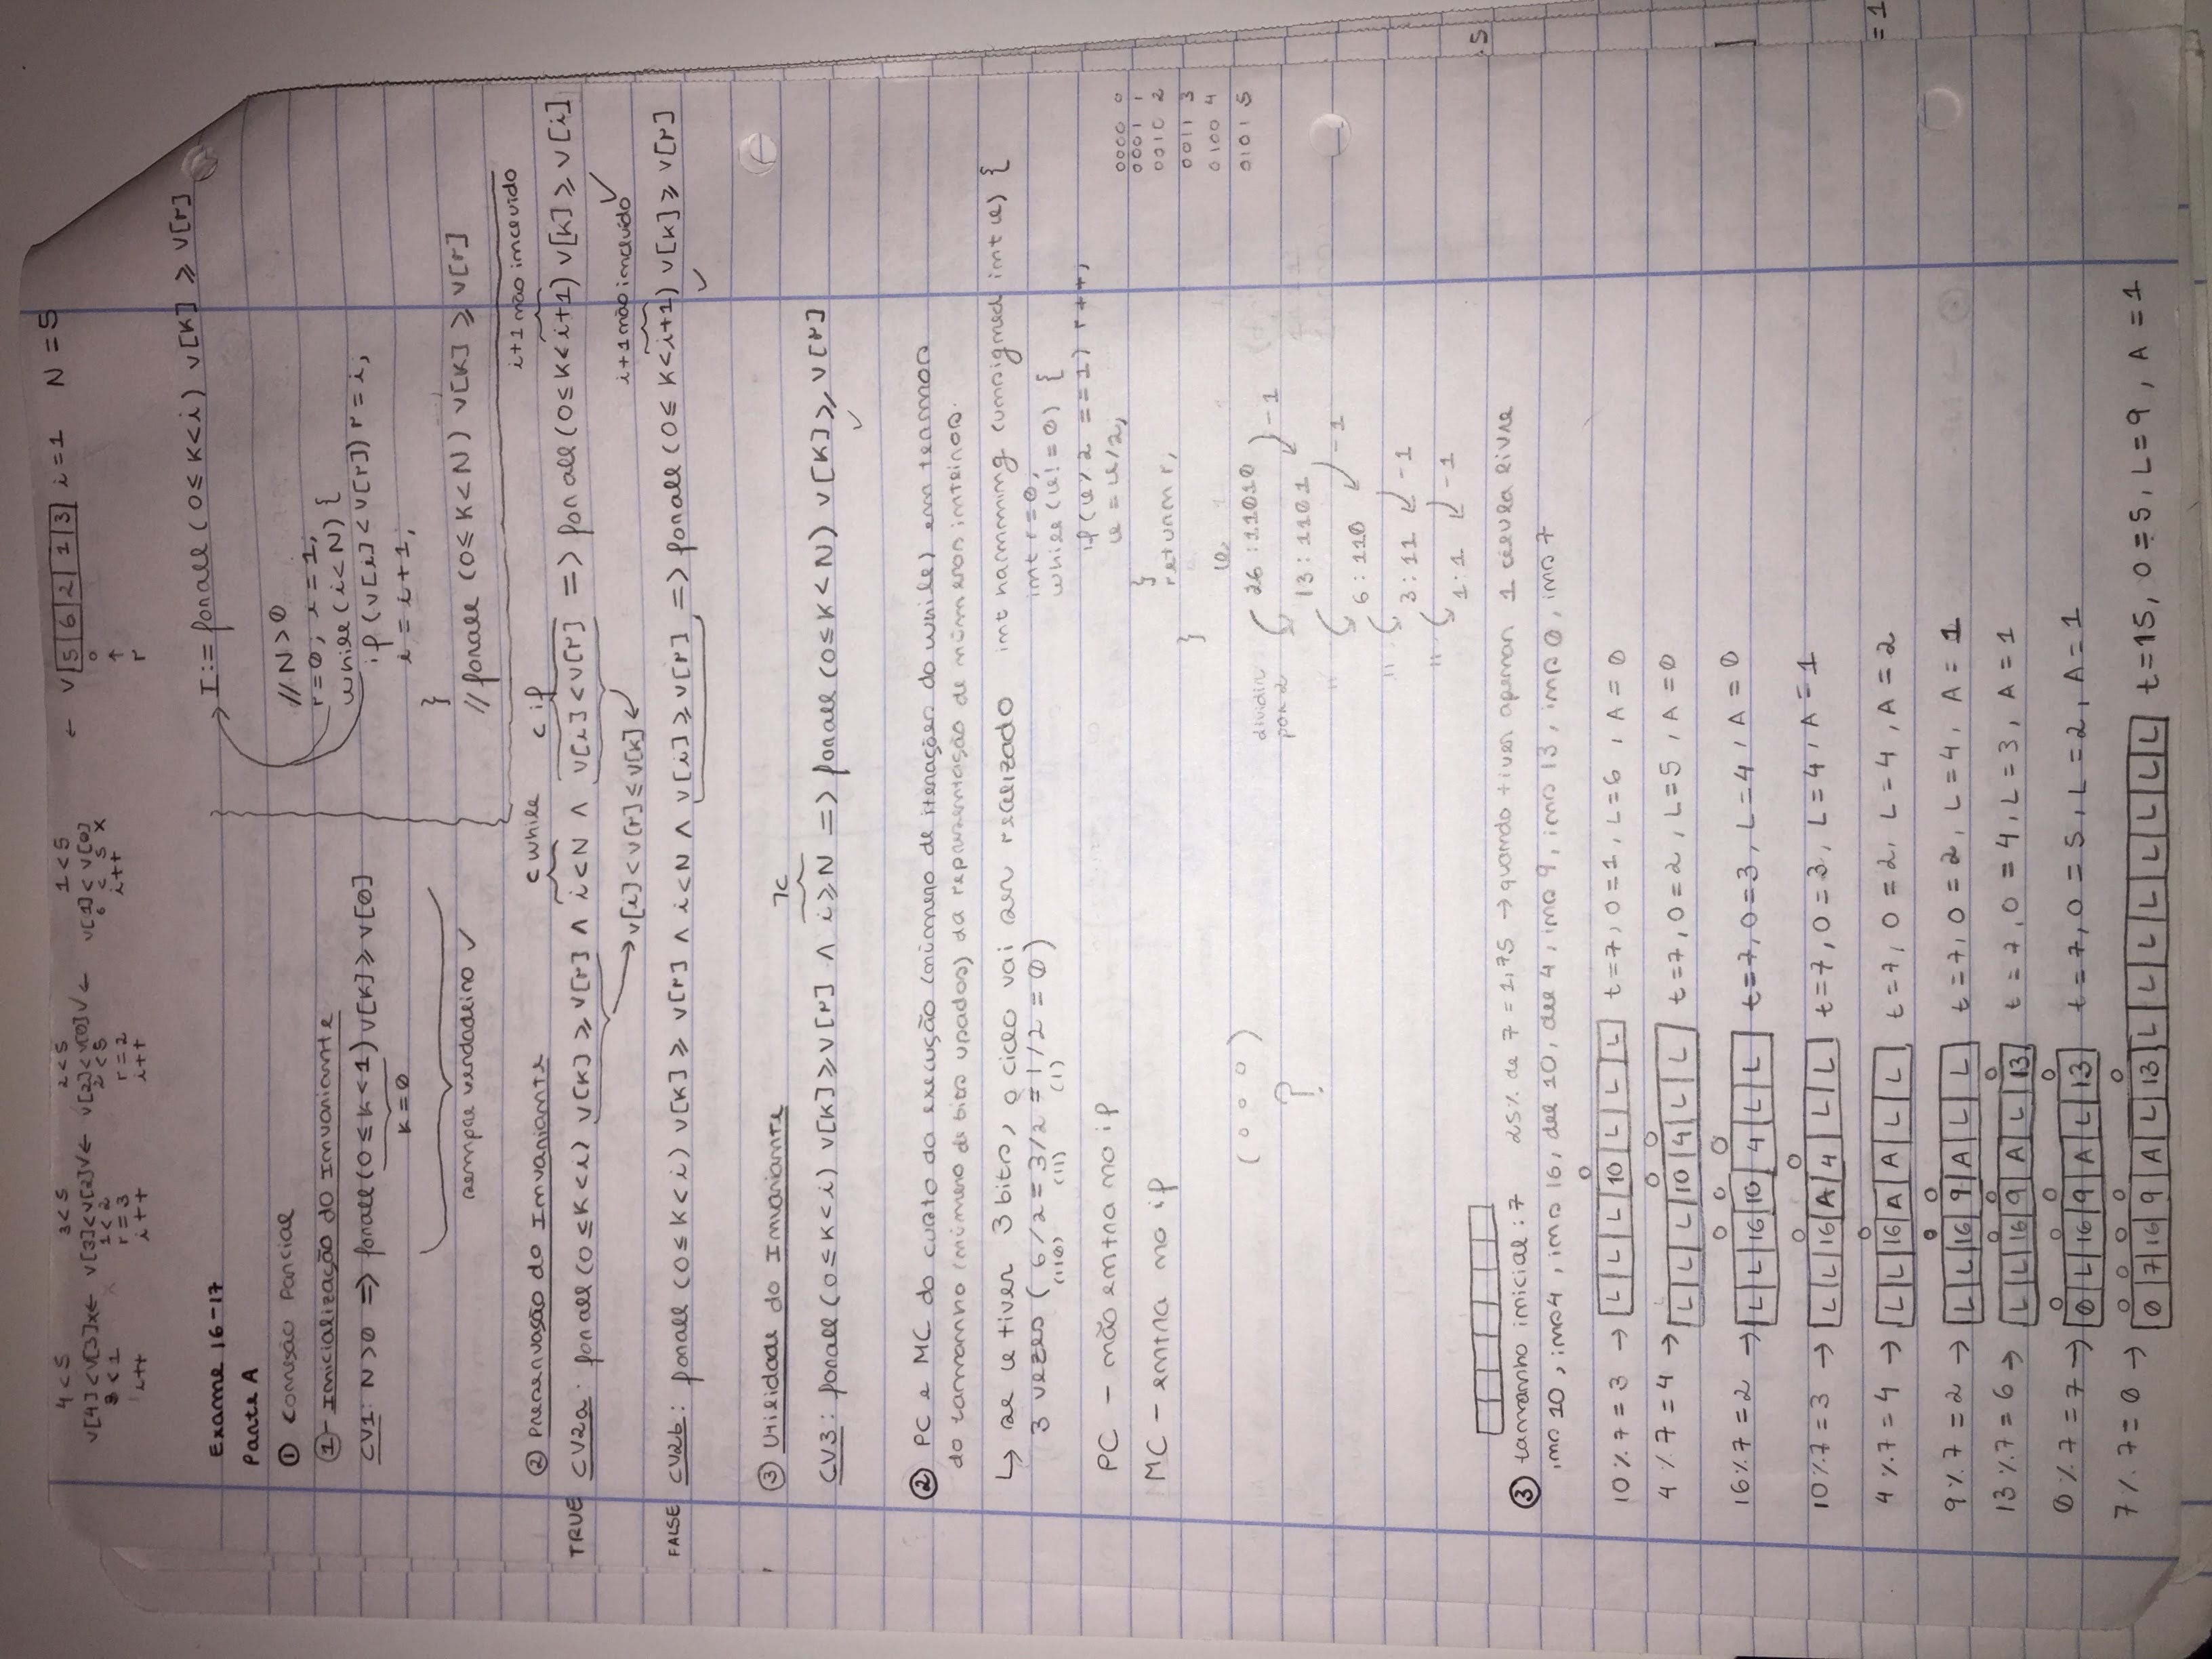 4 < 5   3 < 5   2 < 5   1 < 5   ← v[5|6|2|1|3] i=1 N = 5
v[4] < v[3] x ← v[3] < v[2] v ← v[2] < v[0] v ← v[1] < v[0]   0
3 < 1   1 < 2   2 < 5   6 < 5 x   ↑
i++   r = 3   r = 2   i++   r
i++   i++
I := forall (0 ≤ k < i) v[k] ≥ v[r]
Exame 16-17
Parte A
① Correção Parcial
① - Inicialização do Invariante
CV1: N > 0 => forall (0 ≤ k < 1) v[k] ≥ v[0]
k = 0
sempre verdadeiro ✓
// N > 0
r = 0; i = 1;
while (i < N) {
if (v[i] < v[r]) r = i;
i = i + 1;
}
// forall (0 ≤ k < N) v[k] ≥ v[r]
② Preservação do Invariante   c while   c if   i+1 não incluído
TRUE CV2a: forall (0 ≤ k < i) v[k] ≥ v[r] ∧ i < N ∧ v[i] < v[r] => forall (0 ≤ k < i+1) v[k] ≥ v[i] ✓
→ v[i] < v[r] ≤ v[k] ←   i+1 não incluído
FALSE CV2b: forall (0 ≤ k < i) v[k] ≥ v[r] ∧ i < N ∧ v[i] ≥ v[r] => forall (0 ≤ k < i+1) v[k] ≥ v[r] ✓
③ Utilidade do Invariante   ¬c
CV3: forall (0 ≤ k < i) v[k] ≥ v[r] ∧ i ≥ N => forall (0 ≤ k < N) v[k] ≥ v[r] ✓
② PC e MC do custo da execução (número de iterações do while) em termos
do tamanho (número de bits usados) da representação de números inteiros.
↳ se u tiver 3 bits, o ciclo vai ser realizado
3 vezes ( 6/2 = 3/2 = 1/2 = 0 )
(110) (11) (1)
PC - não entra no if
MC - entra no if
( o o o )
?
int hamming (unsigned int u) {
int r = 0;
while (u != 0) {
if (u % 2 == 1) r++;
u = u/2;
}
return r;
}
0000 0
0001 1
0010 2
0011 3
0100 4
0101 5
u
dividir por 2   26 : 11010   -1
13 : 1101
"   -1
6 : 110
"   -1
3 : 11
"   -1
1 : 1
③ tamanho inicial : 7   25% de 7 = 1,75 → quando tiver apenas 1 célula livre
ins 10, ins 4, ins 16, del 10, del 4, ins 9, ins 13, ins 0, ins 7
O
10 % 7 = 3 → |L|L|L|10|L|L|L| t=7, O=1, L=6, A=0
O O
4 % 7 = 4 → |L|L|L|10|4|L|L| t=7, O=2, L=5, A=0
O O O
16 % 7 = 2 → |L|L|16|10|4|L|L| t=7, O=3, L=4, A=0
O O
10 % 7 = 3 → |L|L|16|A|4|L|L| t=7, O=3, L=4, A=1
O
4 % 7 = 4 → |L|L|16|A|A|L|L| t=7, O=2, L=4, A=2
O O
9 % 7 = 2 → |L|L|16|9|A|L|L| t=7, O=2, L=4, A=1
O O O
13 % 7 = 6 → |L|L|16|9|A|L|13| t=7, O=4, L=3, A=1
O O O O
0 % 7 = 7 → |0|L|16|9|A|L|13| t=7, O=5, L=2, A=1
O O O O O
7 % 7 = 0 → |0|7|16|9|A|L|13|L|L|L|L|L|L|L| t=15, O=5, L=9, A=1
.5
= 1